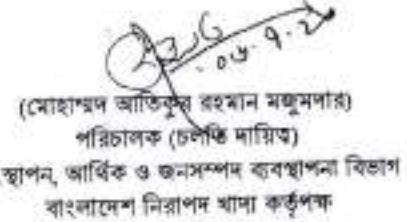 (মোহাম্মদ আতিকুর রহমান মজুমদার)
পরিচালক (চলতি দায়িত্ব)
স্থাপন, আর্থিক ও জনসম্পদ ব্যবস্থাপনা বিভাগ
বাংলাদেশ নিরাপদ খাদ্য কর্তৃপক্ষ